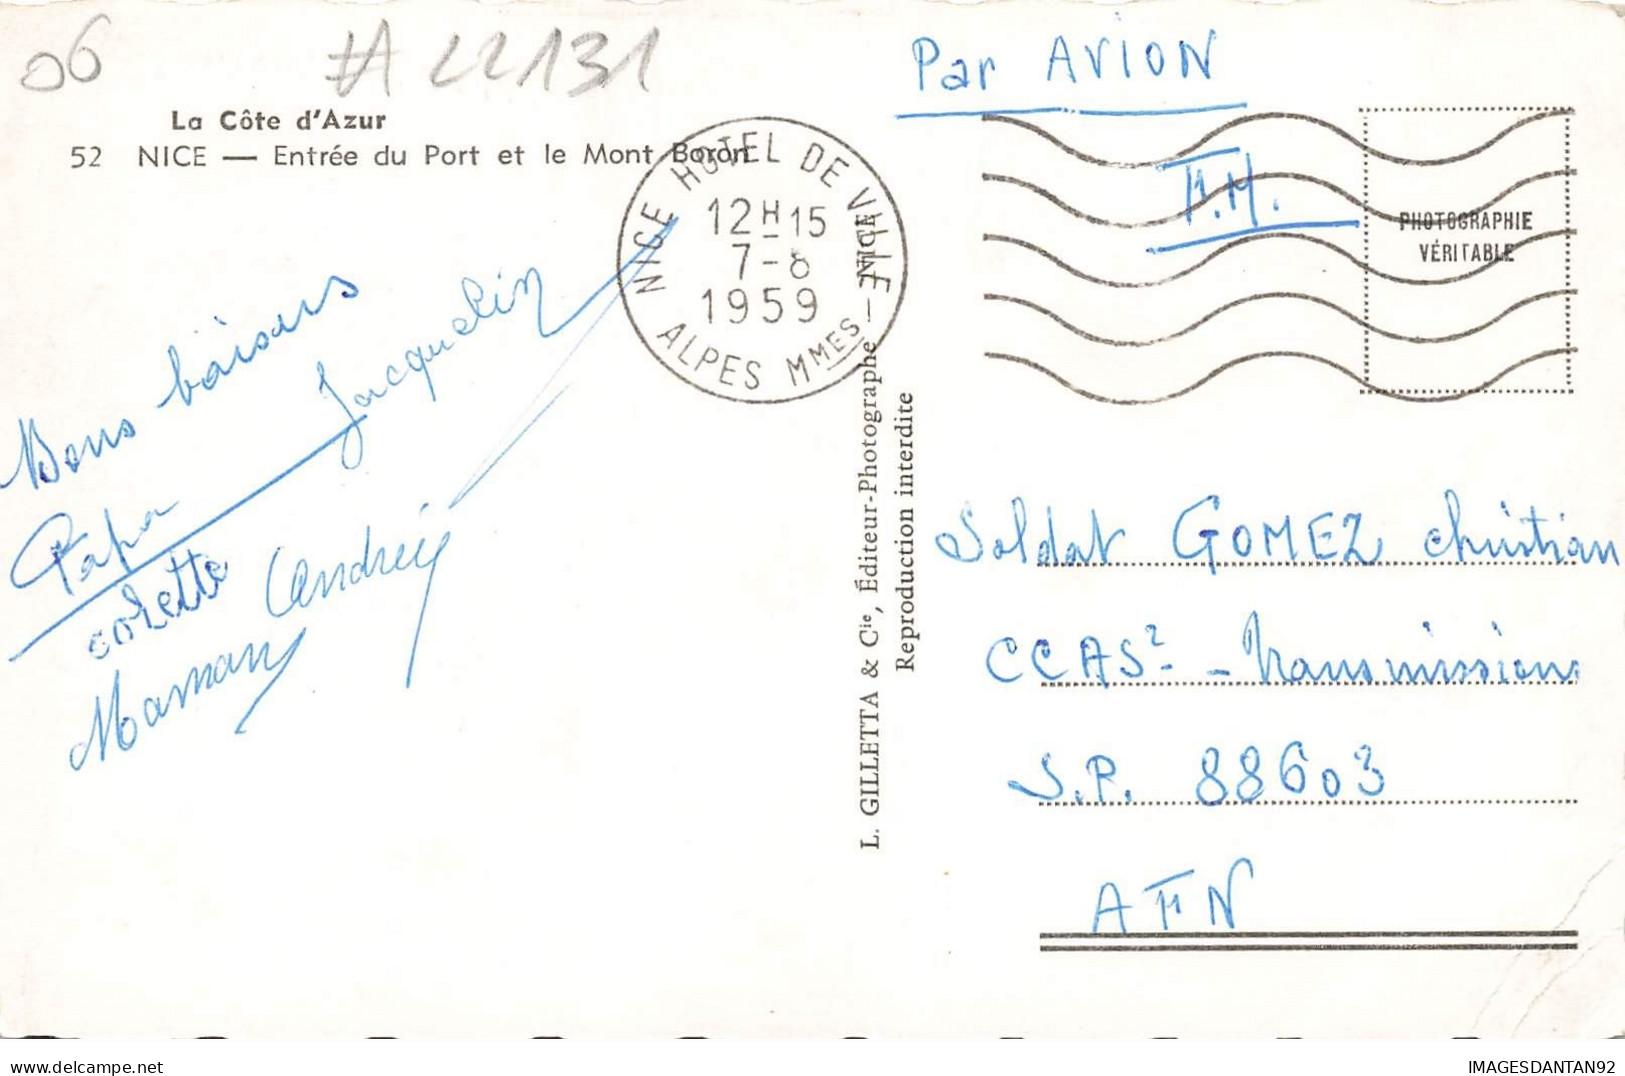 06
#A 22131
La Côte d'Azur
52 NICE — Entrée du Port et le Mont Boron
NICE HOTEL DE VILLE
12H15
7-8
1959
ALPES MMES
Par AVION
F.M.
PHOTOGRAPHIE
VÉRITABLE
Bons baisers
Papa Jacquelin
colette Andrée
Maman
L. GILLETTA & Cie, Éditeur-Photographe — NICE
Reproduction interdite
Soldat GOMEZ Christian
CCAS2 - Transmissions
S.P. 88603
AFN
IMAGESDANTAN92